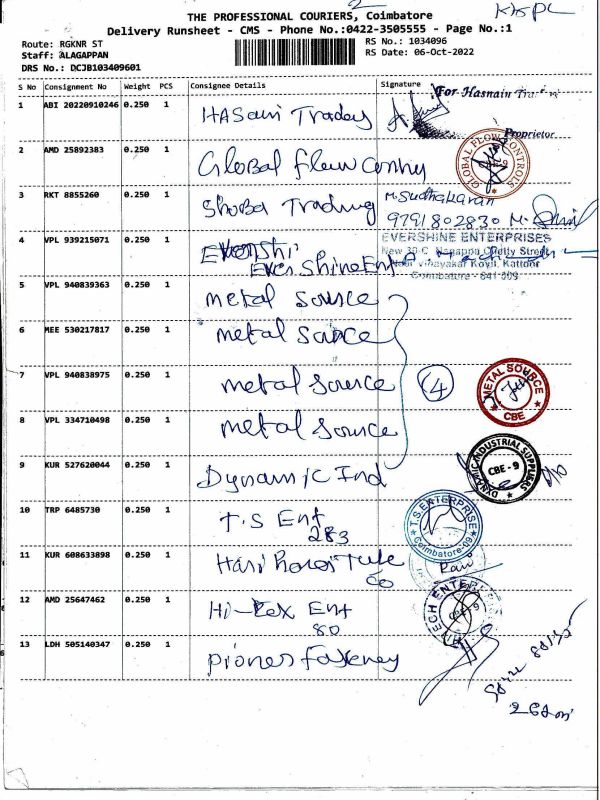 THE PROFESSIONAL COURIERS, Coimbatore
Delivery Runsheet - CMS - Phone No.:0422-3505555 - Page No.:1
Route: RGKNR ST
Staff: ALAGAPPAN
DRS No.: DCJB103409601
RS No.: 1034096
RS Date: 06-Oct-2022
S No Consignment No Weight PCS Consignee Details Signature
For Hasnain
1 ABI 20220910246 0.250 1 Trades
Proprietor
2 AMD 25892383 0.250 1 Global Flow
GLOBAL FLOW CONTROLS
3 RKT 8855260 0.250 1 Shoba Trading M. Sudhakaran
9791802830
4 VPL 939215071 0.250 1 Evershi
EVERSHINE ENTERPRISES
Ever Shine Ent
New 30-C, Nagappa Chetty Street,
Vinayakar Kovil, Kattoor
Coimbatore - 641 009
5 VPL 940839363 0.250 1 metal source
6 MEE 530217817 0.250 1 metal
7 VPL 940838975 0.250 1 metal source 4
METAL SOURCE
CBE
8 VPL 334710498 0.250 1 metal source
9 KUR 527620044 0.250 1 Dynamic Ind
DYNAMIC INDUSTRIAL SUPPLIERS
CBE - 9
10 TRP 6485730 0.250 1 T.S Ent
283
T.S ENTERPRISE
Coimbatore-09
11 KUR 608633898 0.250 1 Tube
Co
Ravi
12 AMD 25647462 0.250 1 Hi-Tex Ent
80
13 LDH 505140347 0.250 1